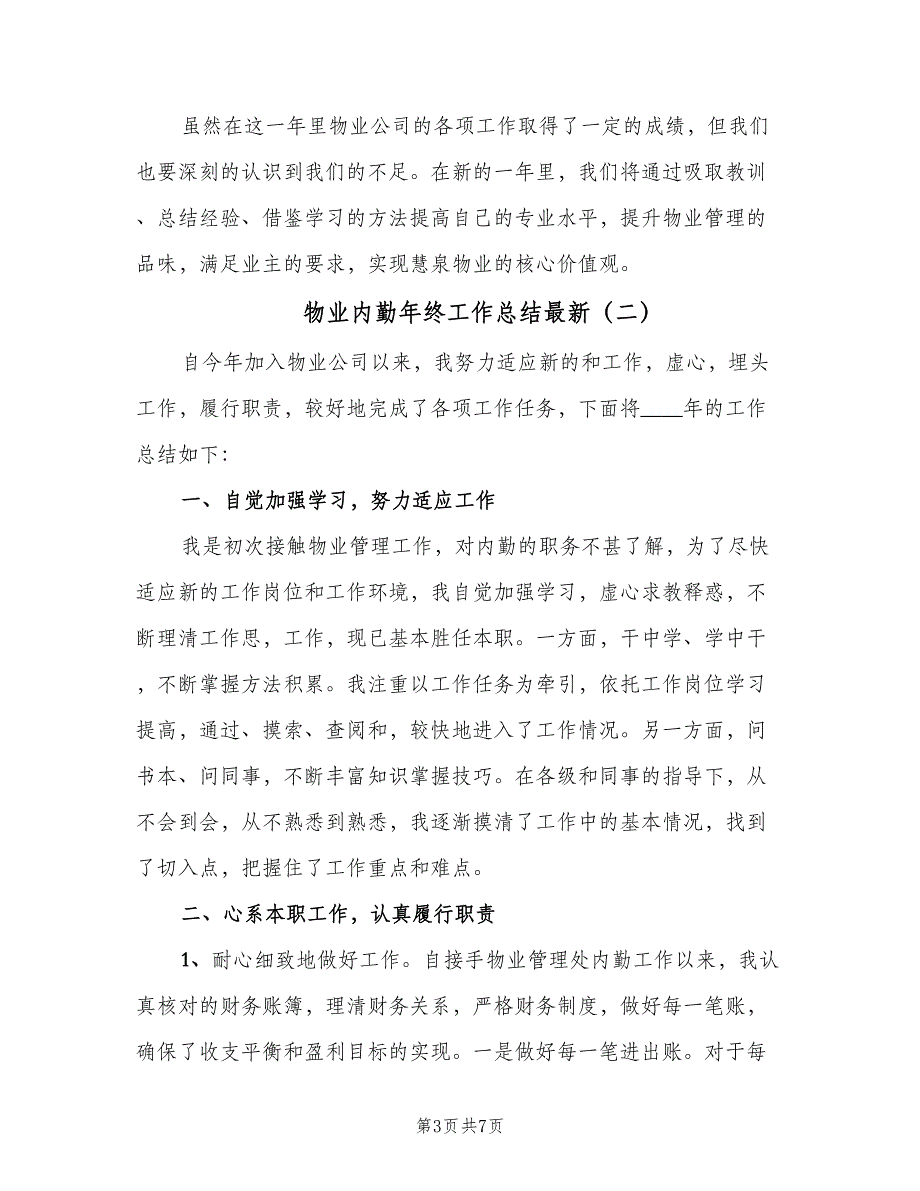 虽然在这一年里物业公司的各项工作取得了一定的成绩，但我们
也要深刻的认识到我们的不足。在新的一年里，我们将通过吸取教训
、总结经验、借鉴学习的方法提高自己的专业水平，提升物业管理的
品味，满足业主的要求，实现慧泉物业的核心价值观。
物业内勤年终工作总结最新（二）
自今年加入物业公司以来，我努力适应新的和工作，虚心，埋头
工作，履行职责，较好地完成了各项工作任务，下面将____年的工作
总结如下：
一、自觉加强学习，努力适应工作
我是初次接触物业管理工作，对内勤的职务不甚了解，为了尽快
适应新的工作岗位和工作环境，我自觉加强学习，虚心求教释惑，不
断理清工作思，工作，现已基本胜任本职。一方面，干中学、学中干
，不断掌握方法积累。我注重以工作任务为牵引，依托工作岗位学习
提高，通过、摸索、查阅和，较快地进入了工作情况。另一方面，问
书本、问同事，不断丰富知识掌握技巧。在各级和同事的指导下，从
不会到会，从不熟悉到熟悉，我逐渐摸清了工作中的基本情况，找到
了切入点，把握住了工作重点和难点。
二、心系本职工作，认真履行职责
1、耐心细致地做好工作。自接手物业管理处内勤工作以来，我认
真核对的财务账簿，理清财务关系，严格财务制度，做好每一笔账，
确保了收支平衡和盈利目标的实现。一是做好每一笔进出账。对于每
第3页共7页